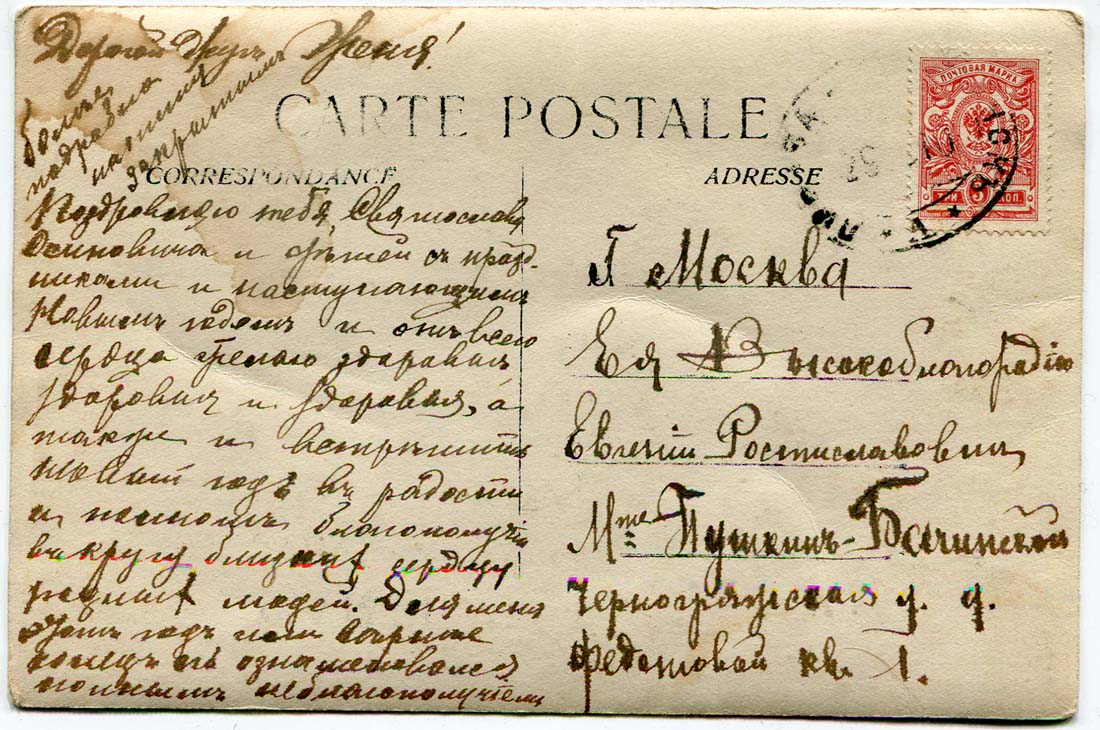 Дорогой другъ Женя!
Больше
поздравляю
закрытымъ
CARTE POSTALE
CORRESPONDANCE
ADRESSE
ПОЧТОВАЯ МАРКА
ТРИ 3 КОП.
Поздравляю тебя Святослава
Осиповича и дѣтей съ празд-
никами и наступающимъ
Новымъ годомъ и отъ всего
сердца желаю здоровья
здоровья и здоровья, а
также и встрѣтить
новый годъ въ радости
и полномъ благополучіи
въ кругу близкихъ сердцу
родныхъ людей. Для меня
этотъ годъ
ознаменовался
полнымъ неблагополучіемъ
Г Москва
Ея Высокоблагородію
Евгеній Ростиславовнѣ
Mme Пушкинъ-
Черногрязская у. д.
Федотовой кв. 1.